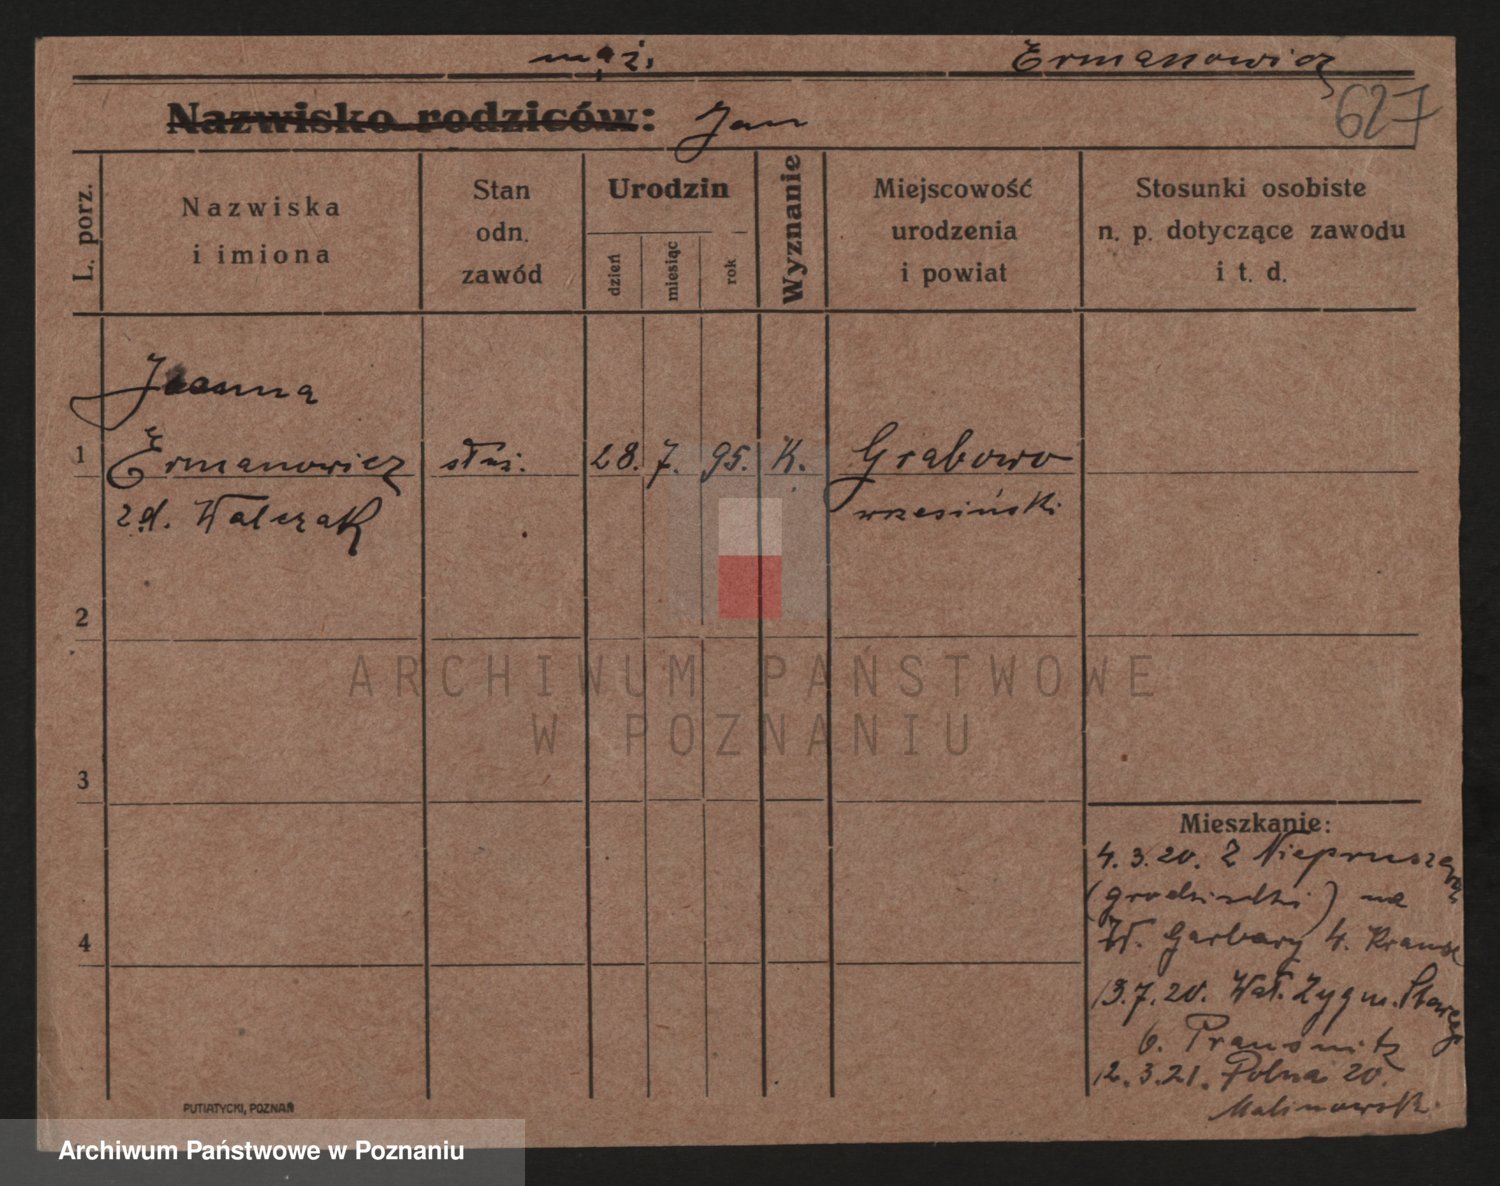 mąż. Ermanowicz
Nazwisko rodziców: Jan
627
L. porz.
Nazwiska
i imiona
Stan
odn.
zawód
Urodzin
dzień
miesiąc
rok
Wyznanie
Miejscowość
urodzenia
i powiat
Stosunki osobiste
n. p. dotyczące zawodu
i t. d.
Joanna
1 Ermanowicz służ. 28. 7. 95. K. Grabowo
zd. Walczak wrzesiński
2
ARCHIWUM PAŃSTWOWE
W POZNANIU
3
Mieszkanie:
4. 3. 20. Z
(grodziski) na
4
W. Garbary 4.
13. 7. 20. Wał. Zygm. Starego
6. Prausnitz
12. 3. 21. Polna 20.
PUTIATYCKI, POZNAŃ
Archiwum Państwowe w Poznaniu